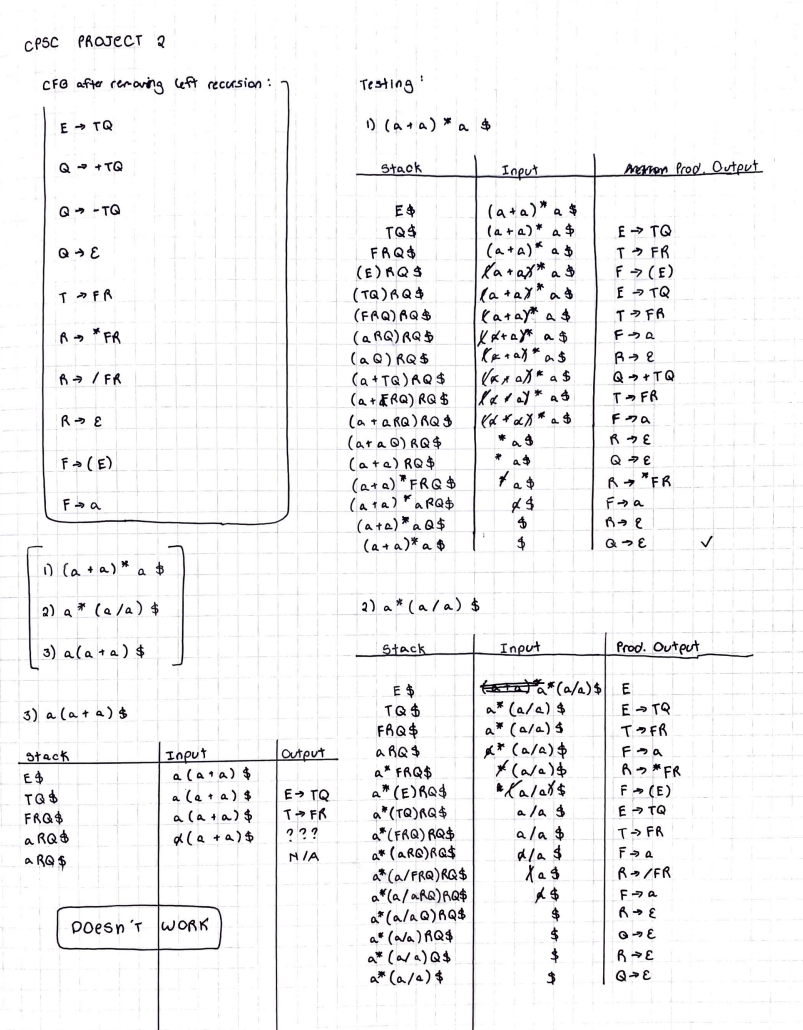 CPSC PROJECT 2
CFG after removing left recursion:
E → TQ
Q → +TQ
Q → -TQ
Q → ε
T → FR
R → *FR
R → /FR
R → ε
F → (E)
F → a
1) (a + a) * a $
2) a * (a/a) $
3) a(a + a) $
3) a(a + a) $
Stack Input Output
E$ a(a+a) $
TQ$ a(a+a) $ E → TQ
FRQ$ a(a+a) $ T → FR
aRQ$ a(a+a) $ ???
aRQ$ N/A
DOESN'T WORK
Testing:
1) (a + a) * a $
Stack Input Prod. Output
E$ (a+a)* a $
TQ$ (a+a)* a $ E → TQ
FRQ$ (a+a)* a $ T → FR
(E)RQ$ (a+a)* a $ F → (E)
(TQ)RQ$ (a+a)* a $ E → TQ
(FRQ)RQ$ (a+a)* a $ T → FR
(aRQ)RQ$ (a+a)* a $ F → a
(aQ)RQ$ (a+a)* a $ R → ε
(a+TQ)RQ$ (a+a)* a $ Q → +TQ
(a+FRQ)RQ$ (a+a)* a $ T → FR
(a+aRQ)RQ$ (a+a)* a $ F → a
(a+aQ)RQ$ * a $ R → ε
(a+a)RQ$ * a $ Q → ε
(a+a)*FRQ$ * a $ R → *FR
(a+a)*aRQ$ a $ F → a
(a+a)*aQ$ $ R → ε
(a+a)*a$ $ Q → ε ✓
2) a*(a/a) $
Stack Input Prod. Output
E$ (a+a)* a*(a/a)$ E
TQ$ a*(a/a) $ E → TQ
FRQ$ a*(a/a) $ T → FR
aRQ$ a*(a/a) $ F → a
a*FRQ$ *(a/a)$ R → *FR
a*(E)RQ$ *(a/a)$ F → (E)
a*(TQ)RQ$ a/a $ E → TQ
a*(FRQ)RQ$ a/a $ T → FR
a*(aRQ)RQ$ a/a $ F → a
a*(a/FRQ)RQ$ /a $ R → /FR
a*(a/aRQ)RQ$ a $ F → a
a*(a/aQ)RQ$ $ R → ε
a*(a/a)RQ$ $ Q → ε
a*(a/a)Q$ $ R → ε
a*(a/a)$ $ Q → ε